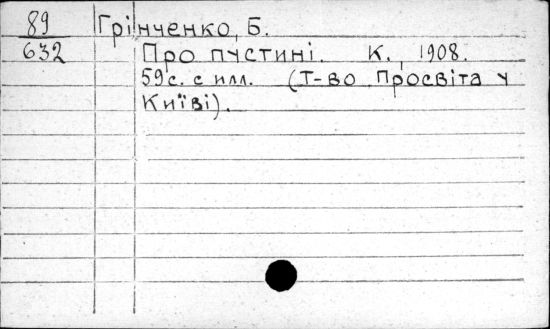 89 Грінченко, Б.
632 Про пустині. К., 1908.
59с. с илл. (Т-во Просвіта у
Київі).